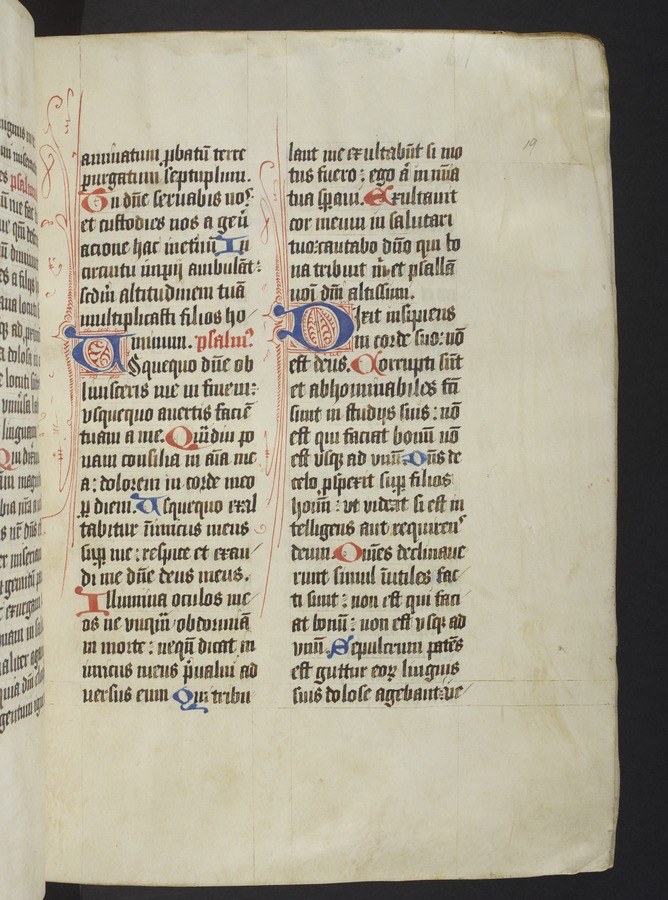 aminatum ꝓbatū terre
purgatum septuplum.
Tu dn̄e seruabis nos:
et custodies nos a gen̄
acione hac ineternū. In
circuitu impij ambulāt:
scdm̄ altitudinem tuā
multiplicasti filios ho
minum. psalmꝰ
Usquequo dn̄e ob
liuisceris me in finem:
vsquequo auertis faciē
tuam a me. Quādiu po
nam consilia in aīa me
a: dolorem in corde meo
ꝑ diem. Usquequo exal
tabitur inimicus meus
suꝑ me: respice et exau
di me dn̄e deus meus.
Illumina oculos me
os ne vnqm̄ obdormiā
in morte: nequn̄ dicat in
imicus meus p̄ualui ad
uersus eum Qui tribu
lant me exultabūt si mo
tus fuero: ego aū in mīa
tua speraui. Exultauit
cor meum in salutari
tuo: cantabo dn̄o qui bo
na tribuit m̄: et psallā
noī dn̄i altissimi.
Dixit insipiens
in corde suo: nō
est deus. Corrupti sūt
et abhominabiles fcī
sunt in studijs suis: nō
est qui faciat bonū nō
est vsqꝫ ad vnū. Dn̄s de
celo ꝓspexit suꝑ filios
hoīm: vt videat si est in
telligens aut requirens
deum. Omēs declinaue
runt simul īutiles fac
ti sunt: non est qui faci
at bonū: non est vsqꝫ ad
vnū. Sepulcrum patēs
est guttur eoꝝ linguis
suis dolose agebant: ve
19